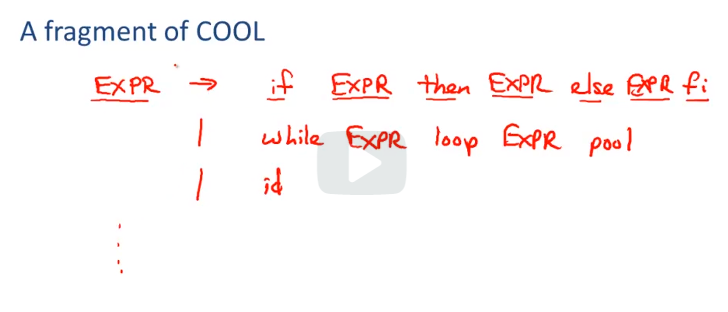 A fragment of COOL
EXPR → if EXPR then EXPR else EXPR fi
| while EXPR loop EXPR pool
| id